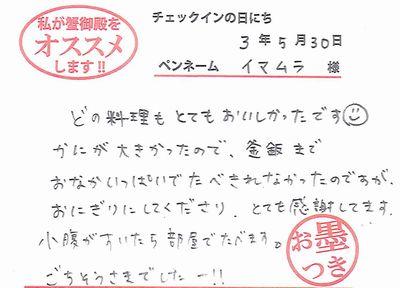 私が蟹御殿を
オススメ
します!!
チェックインの日にち
3年5月30日
ペンネーム イマムラ 様
どの料理もとてもおいしかったです
かにが大きかったので、釜飯まで
おなかいっぱいでたべきれなかったのですが、
おにぎりにしてくださり、とても感謝してます。
小腹がすいたら部屋でたべます。
ごちそうさまでしたー!!
お墨
つき